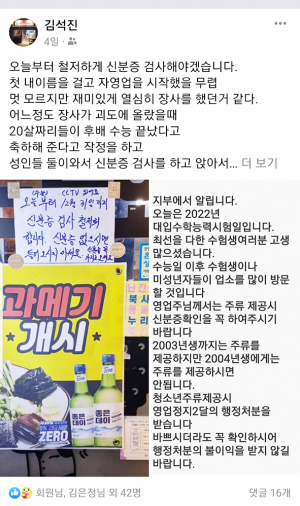 김석진
4일
오늘부터 철저하게 신분증 검사해야겠습니다.
첫 내이름을 걸고 자영업을 시작했을 무렵
멋 모르지만 재미있게 열심히 장사를 했던거 같다.
어느정도 장사가 괴도에 올랐을때
20살짜리들이 후배 수능 끝났다고
축하해 준다고 작정을 하고
성인들 둘이와서 신분증 검사를 하고 앉아서... 더 보기
CCTV
오늘 부터 12월 31일 까지
신분증 검사 철저히
합니다 신분증 없으시면
과메기
개시
좋은데이
좋은데이
ZERO
지부에서 알립니다.
오늘은 2022년
대입수학능력시험일입니다.
최선을 다한 수험생여러분 고생
많으셨습니다.
수능일 이후 수험생이나
미성년자들이 업소를 많이 방문
할 것입니다
영업주님께서는 주류 제공시
신분증확인을 꼭 하여주시기
바랍니다
2003년생까지는 주류를
제공하지만 2004년생에게는
주류를 제공하시면
안됩니다.
청소년주류제공시
영업정지2달의 행정처분을
받습니다
바쁘시더라도 꼭 확인하시어
행정처분의 불이익을 받지 않길
바랍니다.
회원님, 김은정님 외 42명
댓글 16개